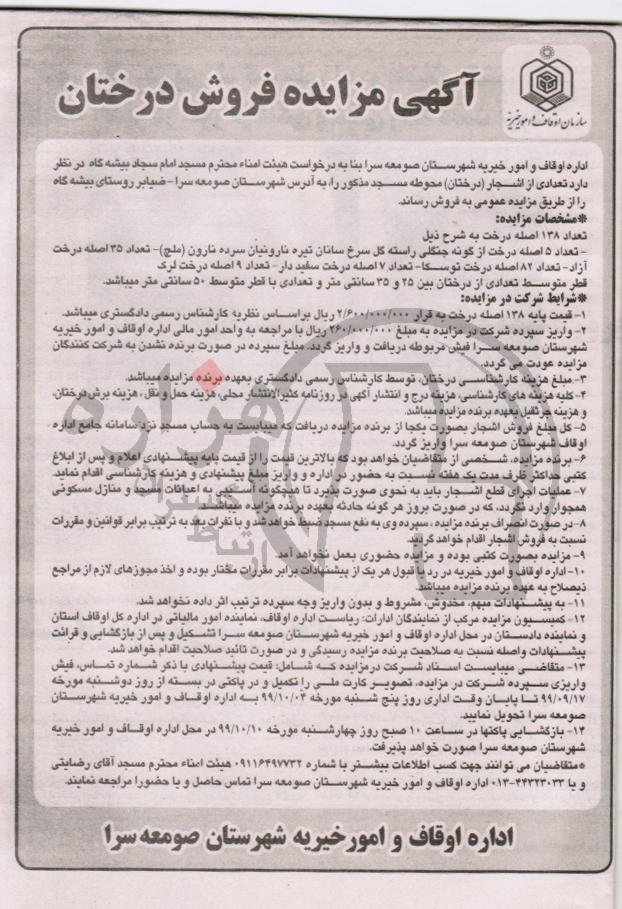 آگهی مزایده فروش درختان
سازمان اوقاف و امور خیریه
اداره اوقاف و امور خیریه شهرستان صومعه سرا بنا به درخواست هیئت امناء محترم مسجد امام سجاد بیشه گاه در نظر
دارد تعدادی از اشجار (درختان) محوطه مسجد مذکور را، به آدرس شهرستان صومعه سرا - ضیابر روستای بیشه گاه
را از طریق مزایده عمومی به فروش رساند.
*مشخصات مزایده:
تعداد ۱۳۸ اصله درخت به شرح ذیل
- تعداد ۵ اصله درخت از گونه جنگلی راسته گل سرخ سانان تیره نارونیان سرده نارون (ملچ)- تعداد ۳۵ اصله درخت
آزاد- تعداد ۸۲ اصله درخت توسکا- تعداد ۷ اصله درخت سفید دار- تعداد ۹ اصله درخت لرک
قطر متوسط تعدادی از درختان بین ۲۵ و ۳۵ سانتی متر و تعدادی با قطر متوسط ۵۰ سانتی متر میباشد.
*شرایط شرکت در مزایده:
۱- قیمت پایه ۱۳۸ اصله درخت به قرار ۲/۶۰۰/۰۰۰/۰۰۰ ریال بر اساس نظریه کارشناس رسمی دادگستری میباشد.
۲- واریز سپرده شرکت در مزایده به مبلغ ۲۶۰/۰۰۰/۰۰۰ ریال با مراجعه به واحد امور مالی اداره اوقاف و امور خیریه
شهرستان صومعه سرا فیش مربوطه دریافت و واریز گردد. مبلغ سپرده در صورت برنده نشدن به شرکت کنندگان
مزایده عودت می گردد.
۳- مبلغ هزینه کارشناسی درختان، توسط کارشناس رسمی دادگستری بعهده برنده مزایده میباشد.
۴- کلیه هزینه های کارشناسی، هزینه درج و انتشار آگهی در روزنامه کثیرالانتشار محلی، هزینه حمل و نقل، هزینه برش درختان،
و هزینه جرثقیل بعهده برنده مزایده میباشد.
۵- کل مبلغ فروش اشجار بصورت یکجا از برنده مزایده دریافت که میبایست به حساب مسجد نزد سامانه جامع اداره
اوقاف شهرستان صومعه سرا واریز گردد.
۶- برنده مزایده، شخصی از متقاضیان خواهد بود که بالاترین قیمت را از قیمت پایه پیشنهادی اعلام و پس از ابلاغ
کتبی حداکثر ظرف مدت یک هفته نسبت به حضور در اداره و واریز مبلغ پیشنهادی و هزینه کارشناسی اقدام نماید
۷- عملیات اجرای قطع اشجار باید به نحوی صورت پذیرد تا هیچگونه آسیبی به اعیانات مسجد و منازل مسکونی
همجوار وارد نگردد، که در صورت بروز هر گونه حادثه بعهده برنده مزایده میباشد.
۸- در صورت انصراف برنده مزایده، سپرده وی به نفع مسجد ضبط خواهد شد و با نفرات بعد به ترتیب برابر قوانین و مقررات
نسبت به فروش اشجار اقدام خواهد گردید.
۹- مزایده بصورت کتبی بوده و مزایده حضوری بعمل نخواهد آمد
۱۰- اداره اوقاف و امور خیریه در رد یا قبول هر یک از پیشنهادات برابر مقررات مختار بوده و اخذ مجوزهای لازم از مراجع
ذیصلاح به عهده برنده مزایده میباشد.
۱۱- به پیشنهادات مبهم، مخدوش، مشروط و بدون واریز وجه سپرده ترتیب اثر داده نخواهد شد.
۱۲- کمیسیون مزایده مرکب از نمایندگان ادارات: ریاست اداره اوقاف، نماینده امور مالیاتی در اداره کل اوقاف استان
و نماینده دادستان در محل اداره اوقاف و امور خیریه شهرستان صومعه سرا تشکیل و پس از بازگشایی و قرائت
پیشنهادات واصله نسبت به صلاحیت برنده مزایده رسیدگی و در صورت تائید صلاحیت اقدام خواهد شد.
۱۳- متقاضی میبایست اسناد شرکت در مزایده که شامل: قیمت پیشنهادی با ذکر شماره تماس، فیش
واریزی سپرده شرکت در مزایده، تصویر کارت ملی را تکمیل و در پاکتی در بسته از روز دوشنبه مورخه
۹۹/۰۹/۱۷ تا پایان وقت اداری روز پنج شنبه مورخه ۹۹/۱۰/۰۴ به اداره اوقاف و امور خیریه شهرستان
صومعه سرا تحویل نمایید.
۱۴- بازگشایی پاکتها در ساعت ۱۰ صبح روز چهارشنبه مورخه ۹۹/۱۰/۱۰ در محل اداره اوقاف و امور خیریه
شهرستان صومعه سرا صورت خواهد پذیرفت.
*متقاضیان می توانند جهت کسب اطلاعات بیشتر با شماره ۰۹۱۱۶۴۹۷۷۳۲ هیئت امناء محترم مسجد آقای رضایتی
و یا ۴۴۳۲۳۰۳۳-۰۱۳ اداره اوقاف و امور خیریه شهرستان صومعه سرا تماس حاصل و یا حضورا مراجعه نمایند.
اداره اوقاف و امور خیریه شهرستان صومعه سرا
هزاره